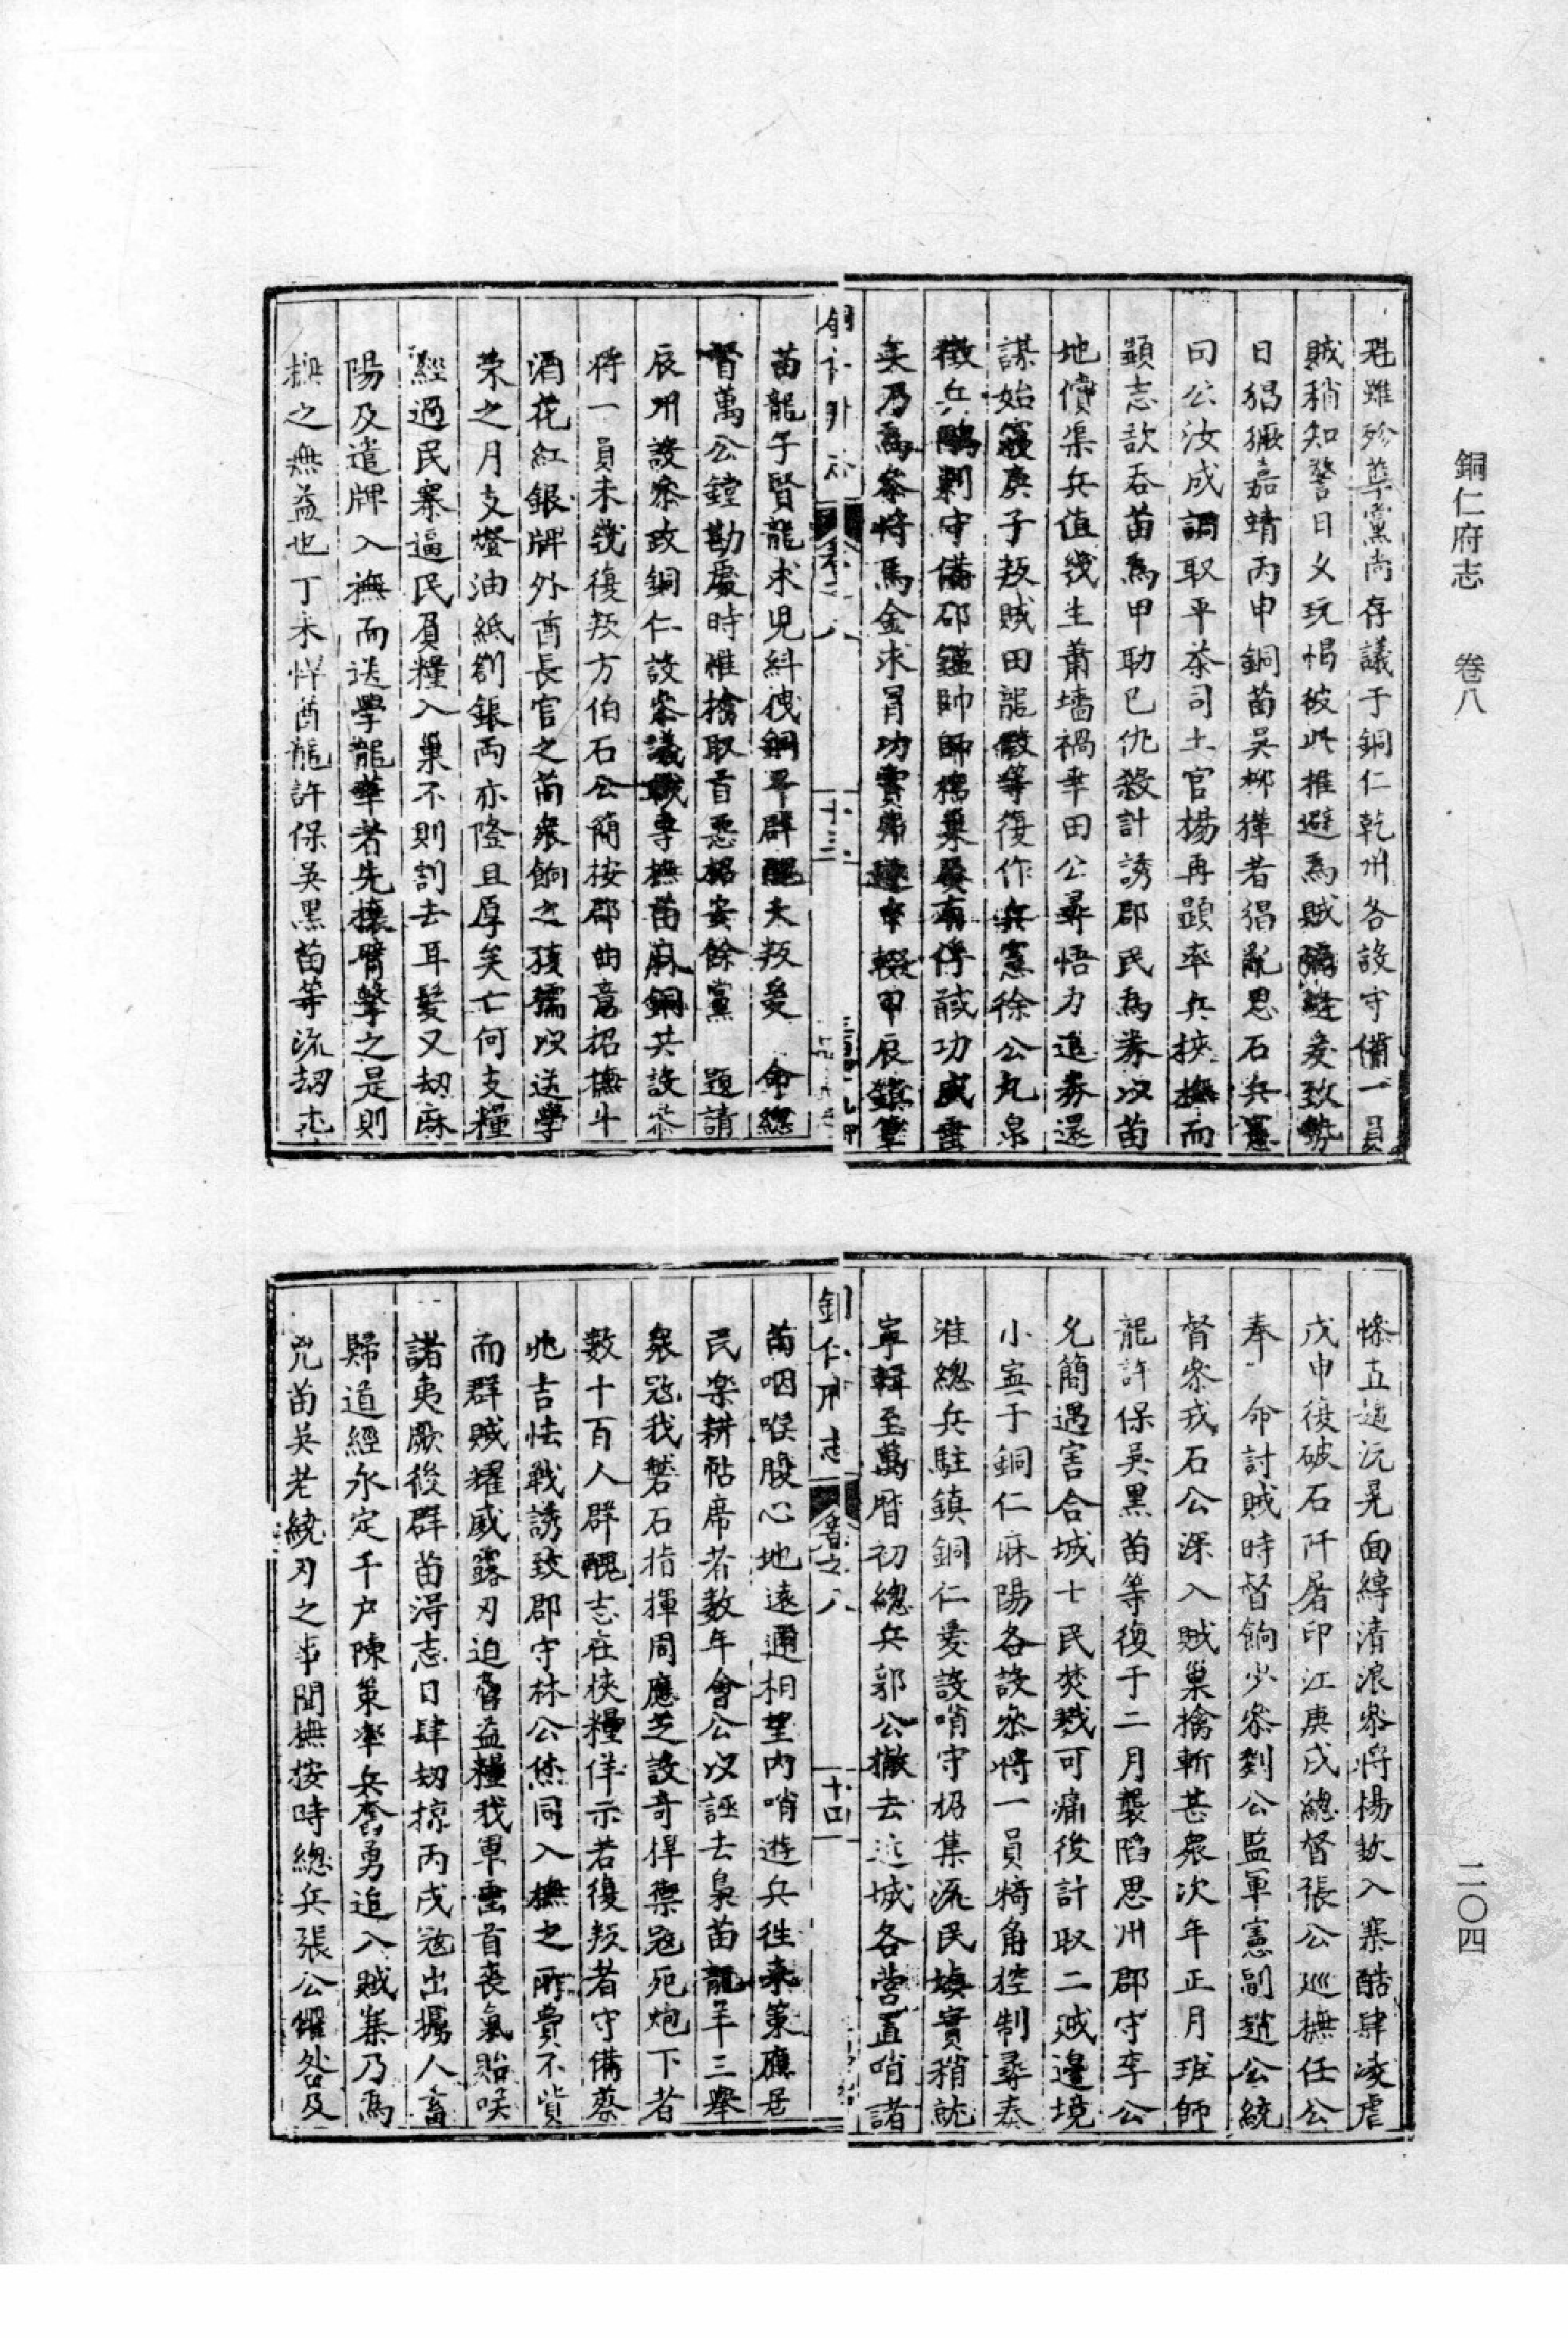 銅仁府志　卷八
二〇四
雖殄孽黨尚存議于銅仁乾州各設守備一員
賊稍知警日久玩愒彼此推避為賊彌縫爰致勢
日猖獗嘉靖丙申銅苗吳柳獐者猖亂思石兵憲
田公汝成調取平茶司土官楊再顯率兵挾撫而
顯志欲吞苗為甲助己仇殺計誘郡民為券以苗
地償渠兵值幾生蕭墻禍幸田公尋悟力追券還
謀始寢庚子叛賊田龍等復作兵憲徐公九皋
徵兵剿守備邛鑑帥師搗巢俘馘功
矣乃為參將馬金求冐功賞弗遂中輟甲辰鎮筸
苗龍子賢龍求兒糾銅平群醜大叛爰　命總
督萬公鏜勘處時惟擒取首惡招安餘黨　題請
辰州設參政銅仁設參議職專撫苗麻銅共設參
將一員未幾復叛方伯石公簡按郡曲意招撫牛
酒花紅銀牌外酋長官之苗衆餉之孩孺以送學
榮之月支燈油紙劄銀兩亦隆且厚矣亡何支糧
經過民寨逼民負糧入巢不則割去耳髮又劫麻
陽及遣牌入撫而送學龍華者先攘臂擊之是則
撫之無益也丁未悍酋龍許保吳黑苗等流劫
銅仁府志　卷之八　十三
沅晃面縛清浪參將楊欽入寨酷肆凌虐
戊申復破石阡屠印江庚戌總督張公巡撫任公
奉　命討賊時督餉少參劉公監軍憲副趙公統
督參戎石公深入賊巢擒斬甚衆次年正月班師
龍許保吳黑苗等復于二月襲陷思州郡守李公
允簡遇害合城士民焚戮可痛後計取二賊邊境
小寍于銅仁麻陽各設參將一員犄角控制尋奏
准總兵駐鎮銅仁爰設哨守招集流民填實稍就
寧輯至萬曆初總兵郭公撤去近城各營直哨諸
苗咽喉腹心地遠通相望內哨遊兵徃來策應居
民樂耕帖席者數年會公以誣去梟苗龍羊三舉
衆冦我磐石指揮周應芝設奇捍禦冦死炮下者
數十百人群醜志在挾糧佯示若復叛者守備蔡
兆吉怯戰誘致郡守林公烋同入撫之所費不貲
而群賊耀威露刃迫脅益糧我軍垂首喪氣貽唉
諸夷厥後群苗淂志日肆刼掠丙戌冦出擄人畜
歸道經永定千户陳策率兵奮勇追入賊寨乃為
兇苗吳老繞刃之事聞撫按時總兵張公懼咎及
銅仁府志　卷之八　十四